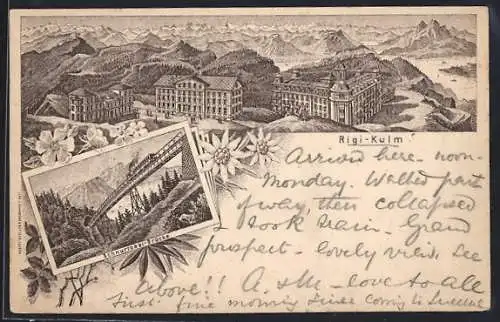 Rigi-Kulm
Arrived here - noon-
Monday. Walked part
of way, then collapsed
& took train. Grand
prospect - lovely view. See
Above!! A. & M. - love to all
First fine morning since coming to Lucerne
Schnurtobel-Brücke